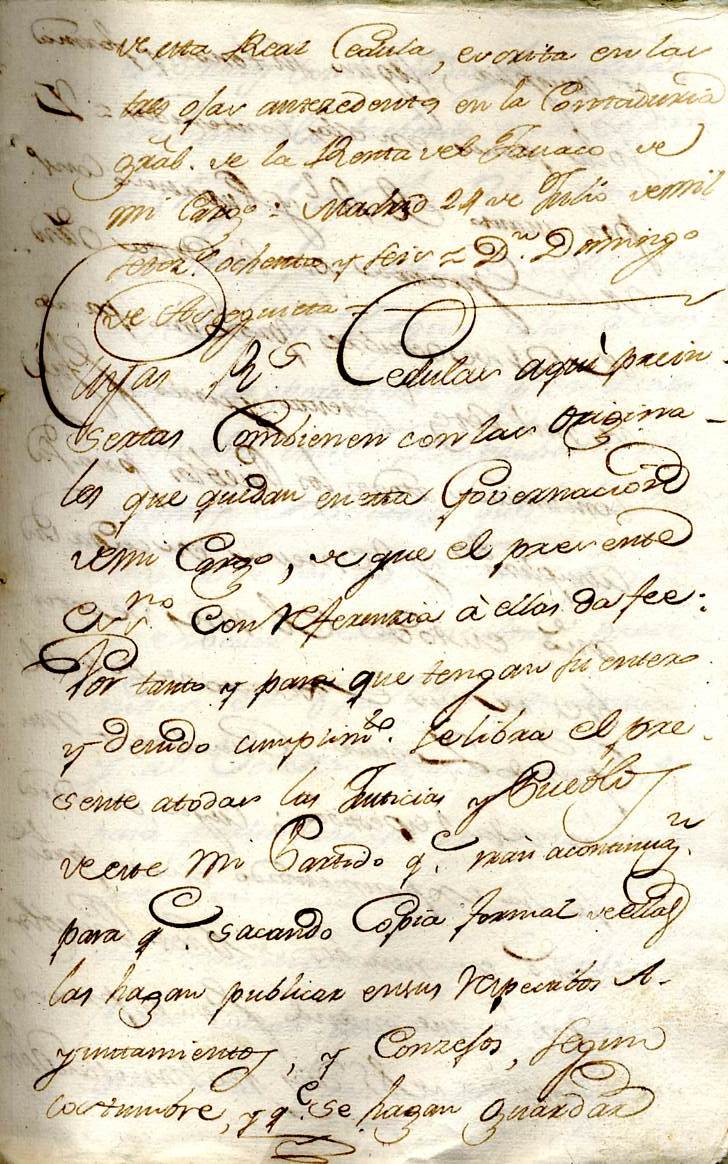 de esta Real Cedula, escrita en las
tres ojas antezedentes en la Contaduria
gräl. de la Renta del Tavaco de
mi Cargo: Madrid 24 de Julio demil
setez.s ochenta y seis = D.n Domingo
de
Cuyas R.s Cedulas aqui prein-
sertas Combienen con las Origina-
les que quedan enesta Governacion
demi Cargo, de que el presente
Ess.no con referenzia à ellas da fee:
Por tanto y para que tengan su entero
y devido cumplim.to. se libra el pre-
sente atodas las Justicias y Pueblos
de este mi Partido q.e irán acontinuaz.n
para q.e sacando Copia formal de ellas
las hagan publicar ensus respectibos A-
yuntamientos, y Conzejos, segun
costumbre, y q.e se hagan guardar